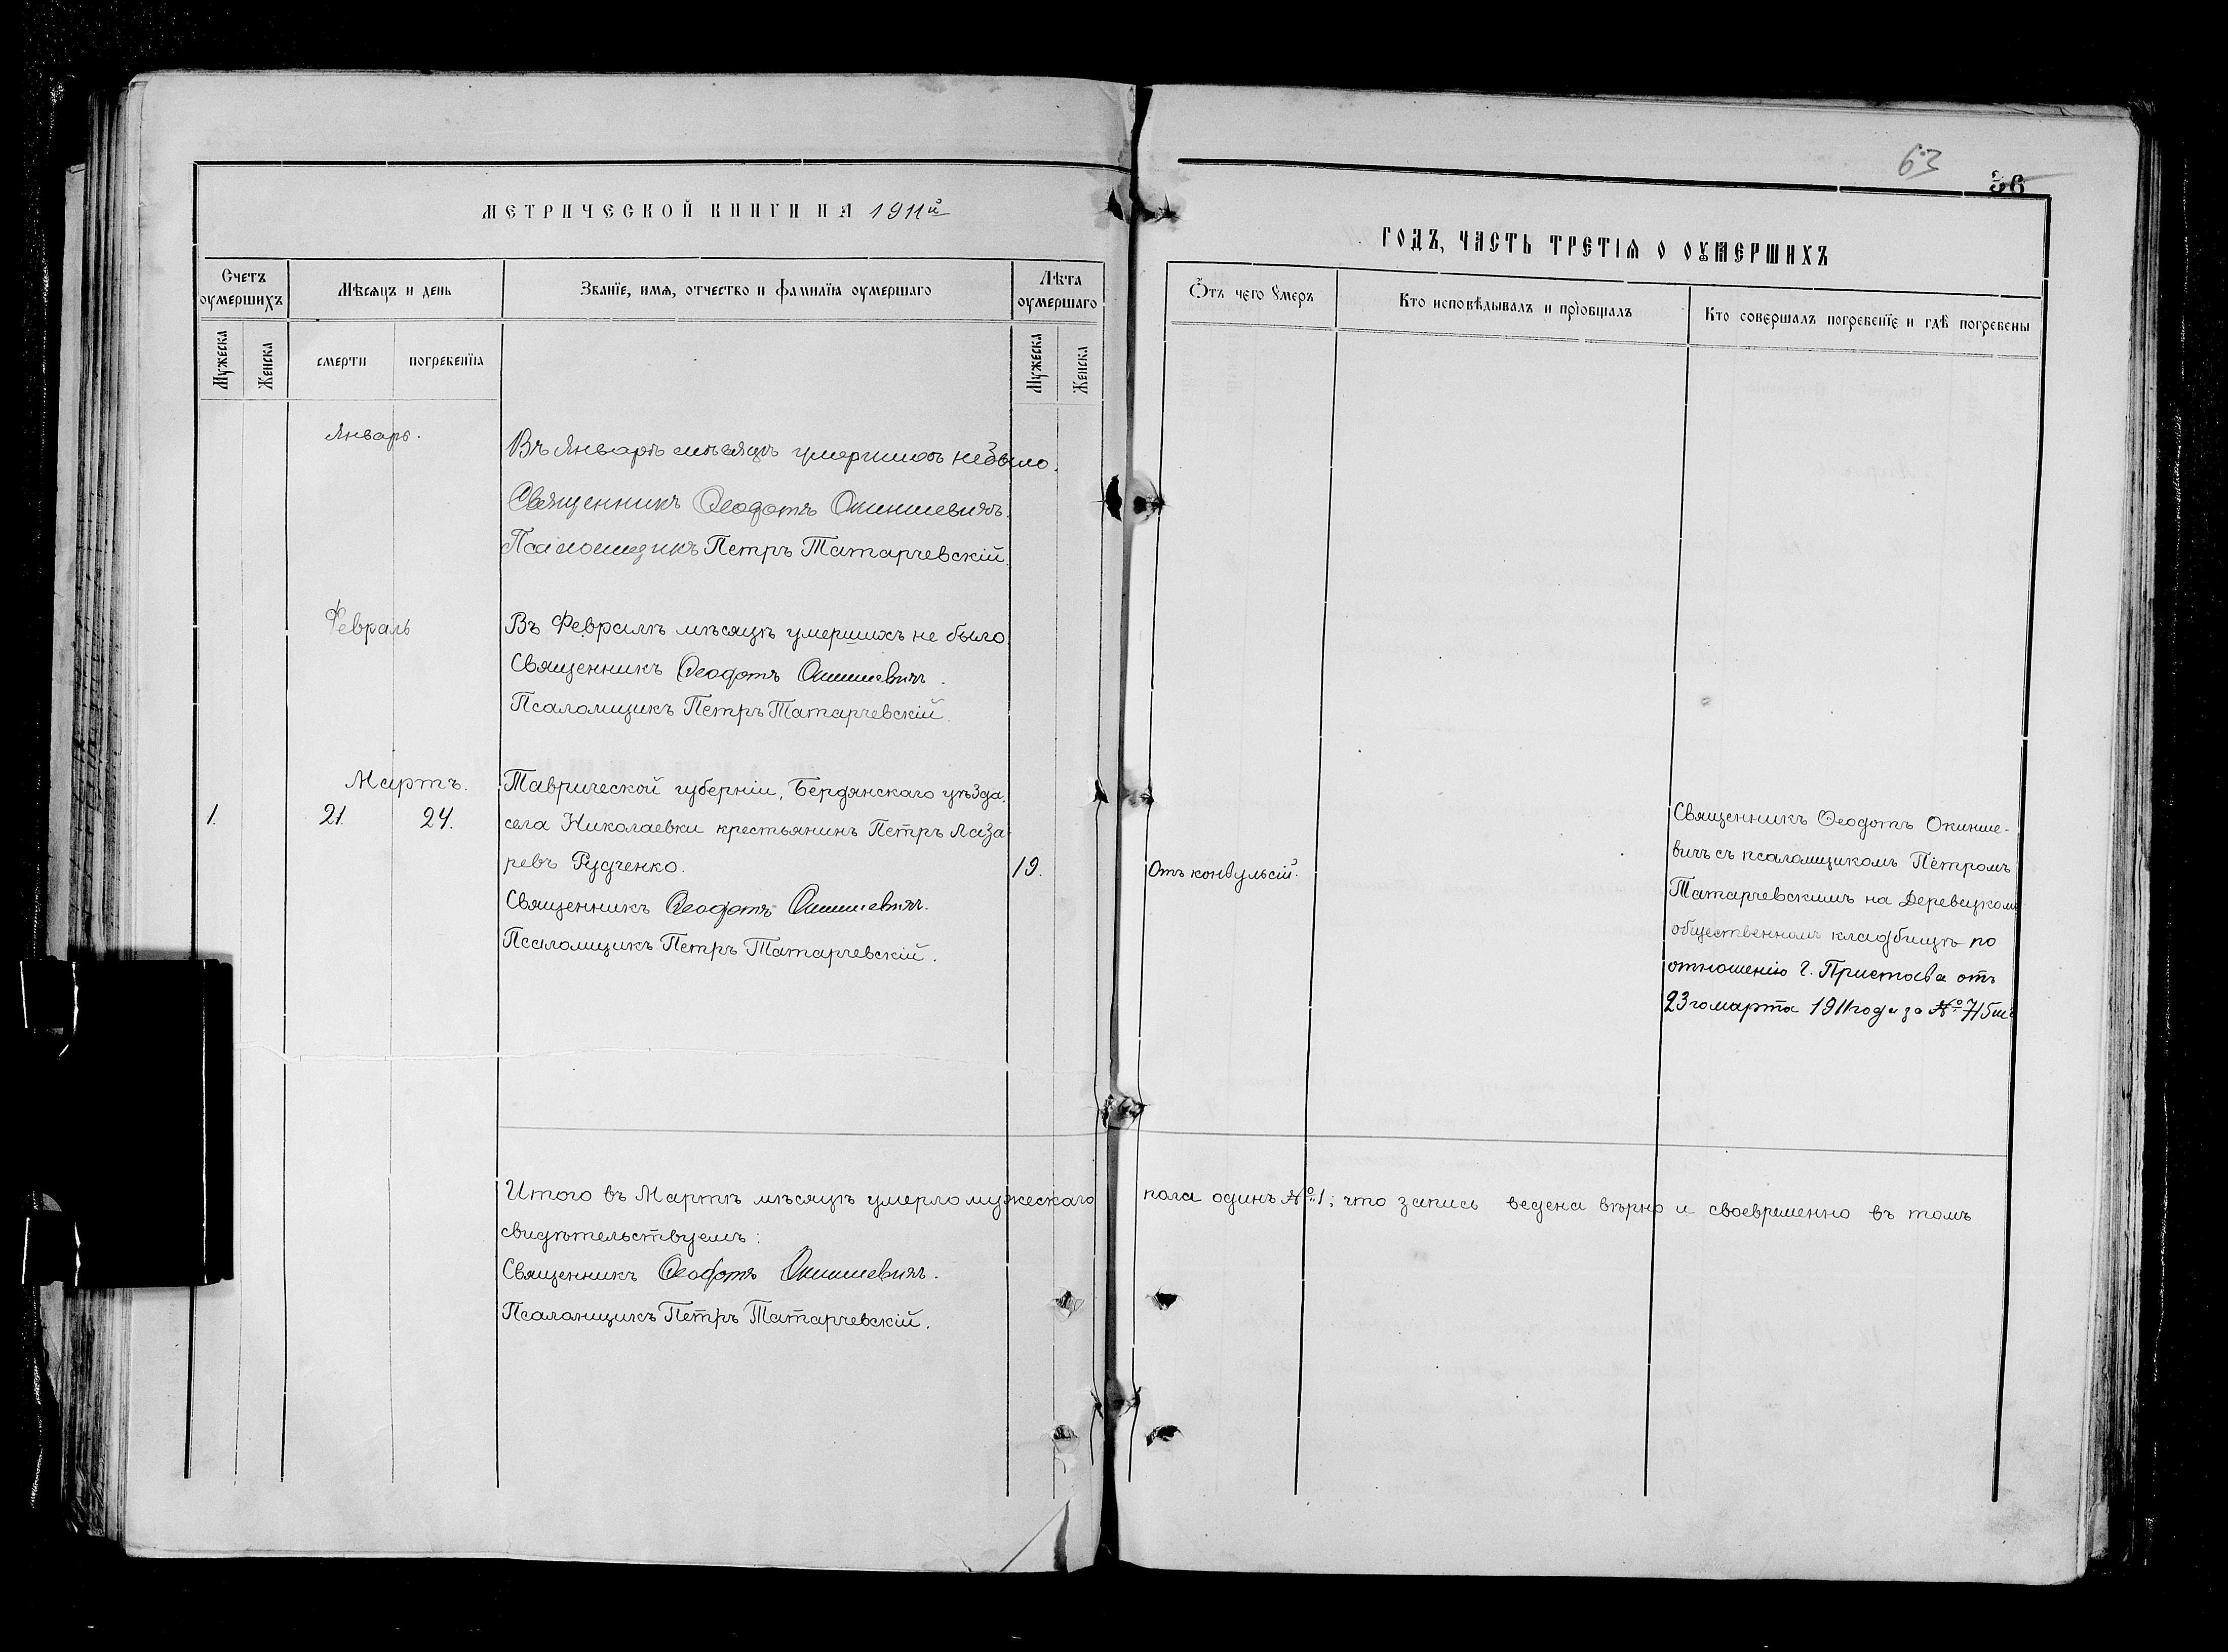 63
36
МЕТРИЧЕСКОЙ КНИГИ НА 1911й
ГОДЪ, ЧАСТЬ ТРЕТІѦ О ОУМЕРШИХЪ
Счетъ оумершихъ
Мѣсяцъ и день
Званїе, имѧ, отчество и фамилїѧ оумершаго
Лѣта оумершаго
Ѿтъ чего Ꙋмеръ
Кто исповѣдывалъ и прїобщалъ
Кто совершалъ погребенїе и гдѣ погребены
Мужеска
Женска
смерти
погребенїѧ
Мужеска
Женска
Январь.
Въ Январѣ мѣсяцѣ умершихъ небыло.
Священникъ Ѳеодотъ Окиншевичъ.
Псаломщикъ Петръ Татарчевскій.
Февраль
Въ Февралѣ мѣсяцѣ умершихъ не было.
Священникъ Ѳеодотъ Окиншевичъ.
Псаломщикъ Петръ Татарчевскій.
Мартъ.
1.
21.
24.
Таврической губерніи, Бердянскаго уѣзда,
села Николаевки крестьянинъ Петръ Лаза-
ревъ Рудченко.
19.
Священникъ Ѳеодотъ Окиншевичъ.
Псаломщикъ Петръ Татарчевскій.
Отъ конвульсій.
Священникъ Ѳеодотъ Окинше-
вичъ съ псаломщикомъ Петромъ
Татарчевскимъ на Деревецкомъ
общественномъ кладбищѣ по
отношенію г. Пристава отъ
23го марта 1911 года за №
Итого въ Мартѣ мѣсяцѣ умерло мужескаго пола одинъ №1; что запись ведена вѣрно и своевременно въ томъ
свидѣтельствуемъ:
Священникъ Ѳеодотъ Окиншевичъ.
Псаломщикъ Петръ Татарчевскій.